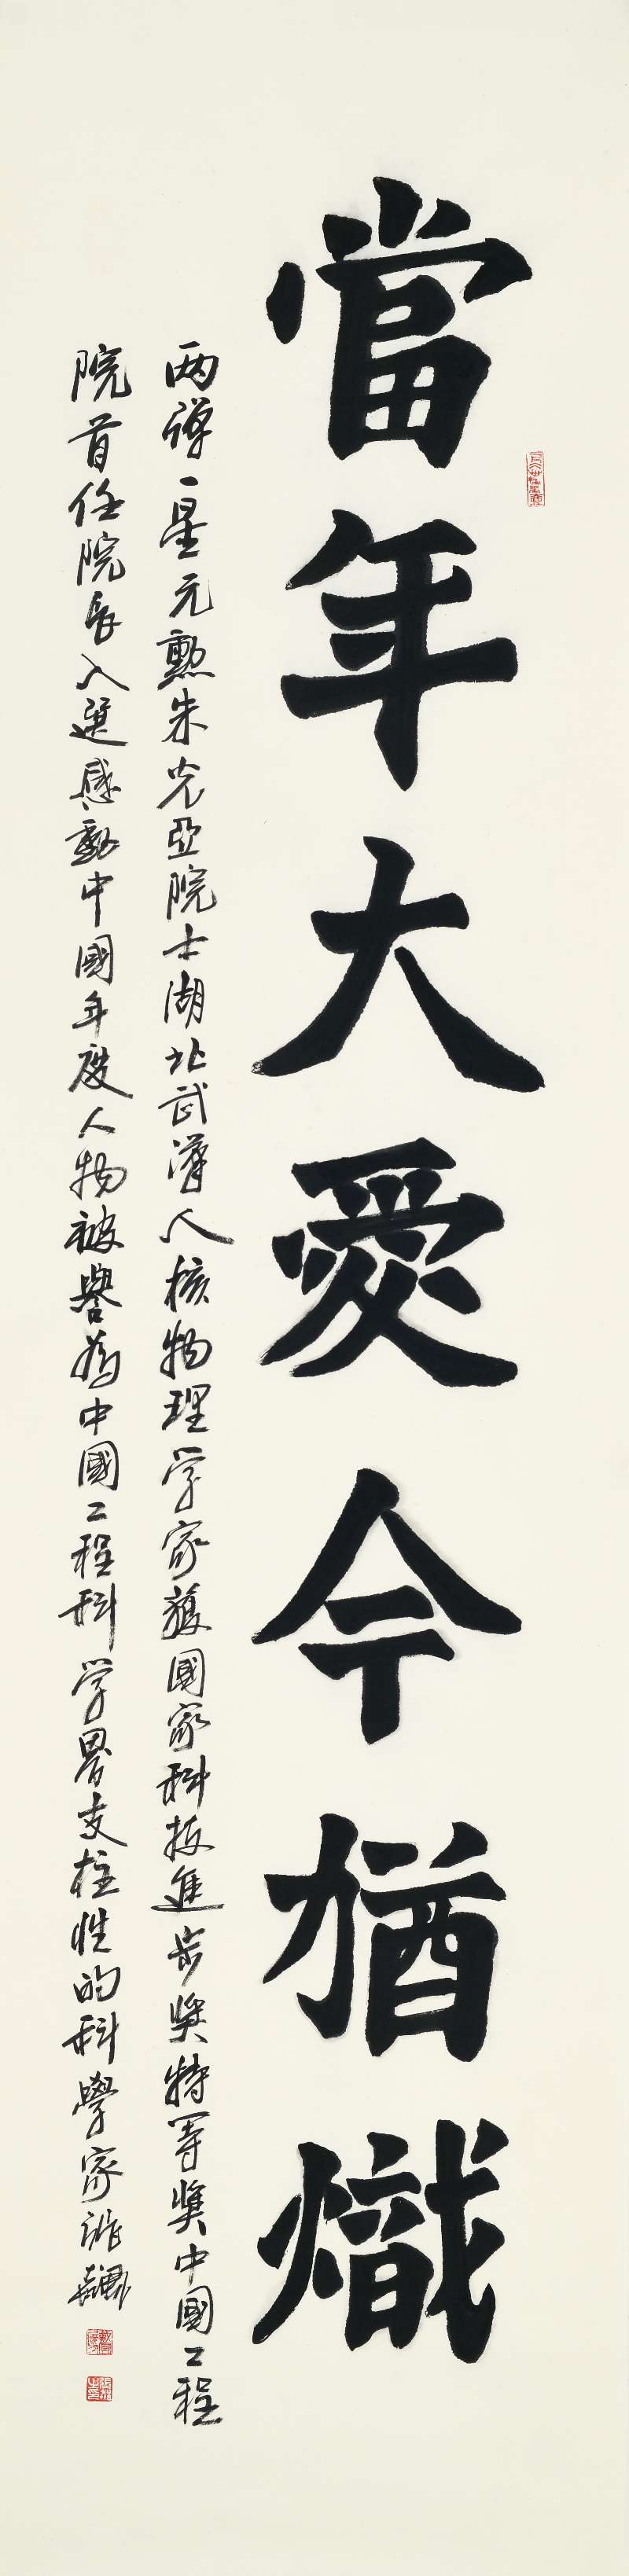 當年大愛今猶熾
两彈一星元勲朱光亞院士湖北武漢人核物理学家獲國家科技進步奖特等獎中國工程
院首任院长入選感動中國年度人物被譽為中國工程科学界支柱性的科學家